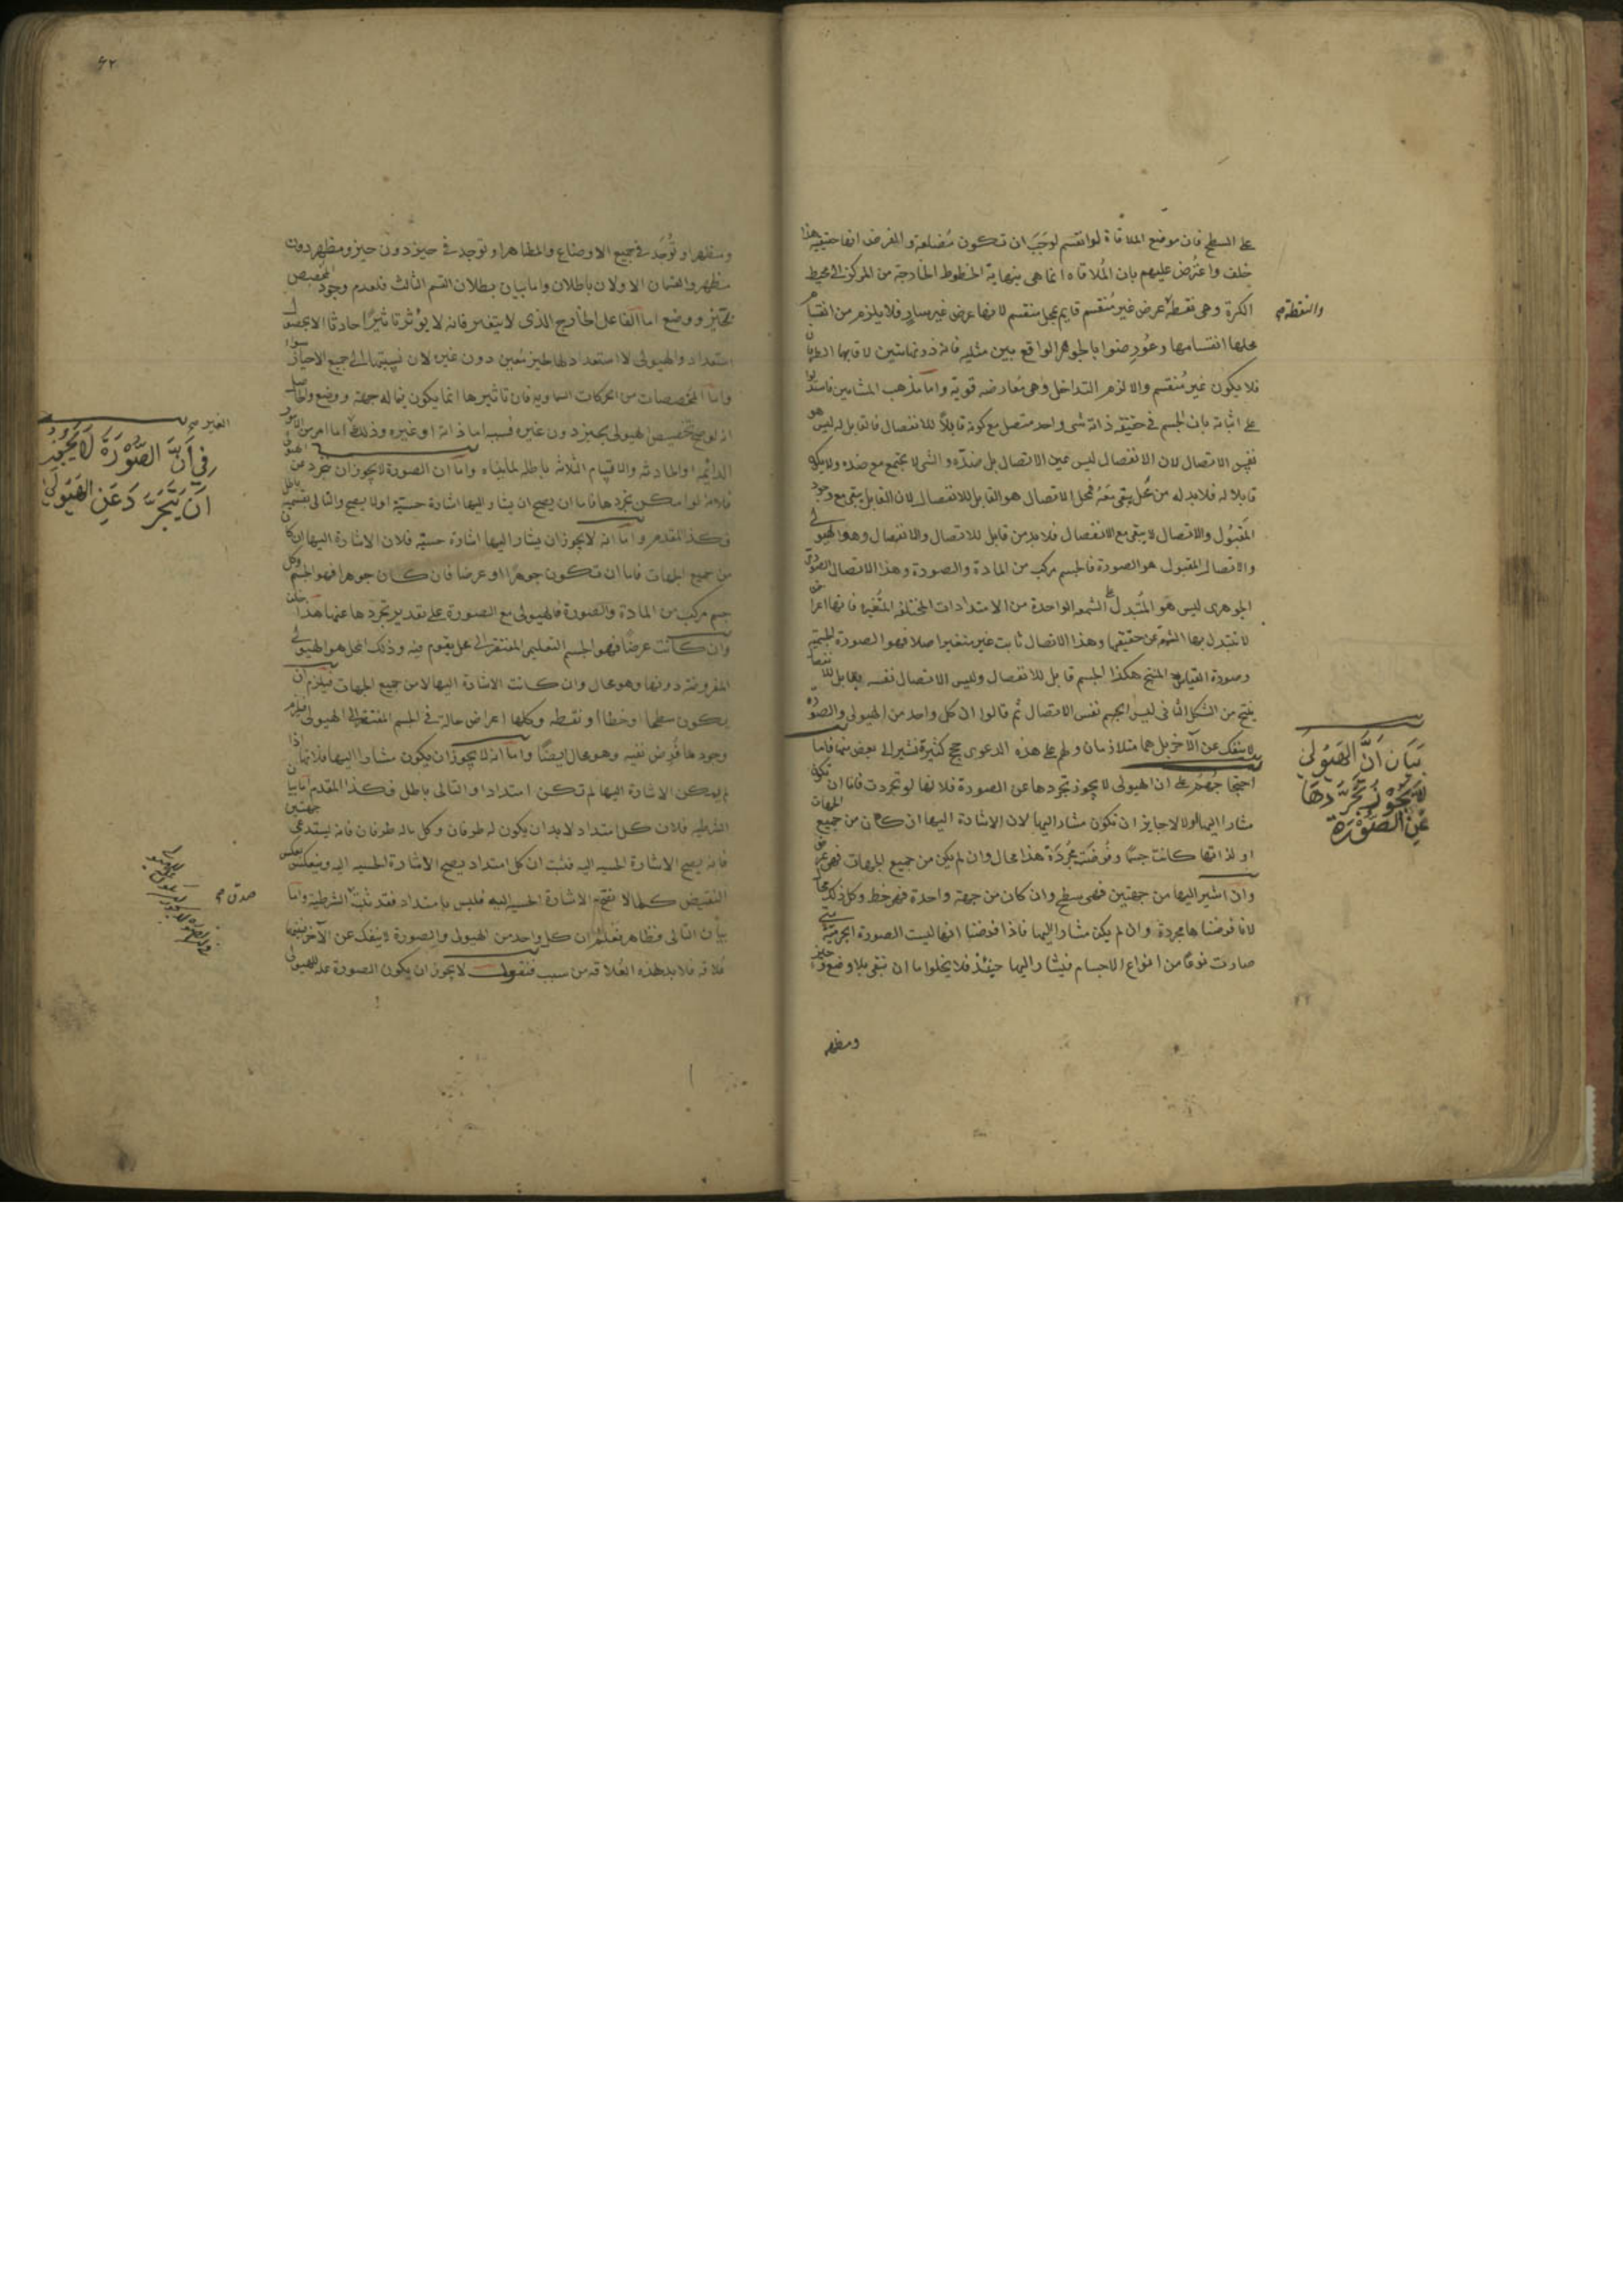 على السطح فان موضع الملاقاة لو انقسم لوَجَبَ ان تكون مُضلعة والمفرض انها حقيقية هذا
خلف واعتُرض عليهم بان المُلاقاه انما هى بنهاية الخطوط الخارجة من المركز الى محيط
الكرة وهى نقطة عرض غير مُنقسم قايم بمحل منقسم لانها عرض غير سارٍ فلا يلزم من انقسام
والنقطة
محلها انقسامها وعُورضوا بالجوهر الواقع بين مثليه فانه ذو نهايتين لاقابهما الطرفان
فلا يكون غير مُنقسم والا لزم التداخل وهى مُعارضه قوية واما مذهب المشايين فاستدلوا
على اثباته بان الجسم فى حقيقة ذاته شى واحد متصل مع كونه قابلاً للانفصال فالقابل له ليس هو
نفس الاتصال لان الانفصال ليس عين الاتصال بل ضدّه والشى لا يجتمع مع ضده ولا يكون
قابلا له فلا بد له من محل يبقى معهُ فمحل الاتصال هو القابل للانفصال لان القابل يبقى مع وجود
المَقبُول والاتصال لا يبقى مع الانفصال فلا بد من قابل للاتصال والانفصال وهو الهيولى
والاتصال المقبول هو الصورة فالجسم مركب من المادة والصورة وهذا الاتصال الصورى
الجوهرى ليس هو المُتبدل على الشمعه الواحدة من الامتدادات المختلفه المتُغيره فانها اعراض
لا تتبدل بها الشمعة عن حقيقتها وهذا الاتصال ثابت غير متغير اصلا فهو الصورة الجسمية
وصورة القياس المنتج هكذا الجسم قابل للانفصال وليس الاتصال نفسه بقابل للانفصال
ينتج من الشكل الثانى ليس الجسم نفس الاتصال ثم قالوا ان كل واحد من الهيولى والصورة
لا ينفك عن الآخر بل هما متلازمان ولهم على هذه الدعوى حجج كثيرة نشير الى بعض منها فاما
بَيَان اَنَّ الهَيُولىَ
لَا يَجُوْزُ تَجَرُّدهَا
عَنِ الصُّوْرَة
احتجاجهُم على ان الهيولى لا يجوز تجردها عن الصورة فلانها لو تجردت فاما ان تكون
مشارا اليها اولا لا جايز ان تكون مشارا اليها لان الاشارة اليها ان كان من جميع الجهات
او لذاتها كانت جسمًا وفُرضت مجُردة هذا محال وان لم يكن من جميع الجهات فهى عرض
وان اشير اليها من جهتين فهى سطح وان كان من جهة واحدة فهو خط وكل ذلك محال
لانا فرضناها مجردة وان لم يكن مشارا اليها فاذا فرضنا انها لبست الصورة الجرمية حتى
صارت نوعًا من انواع الاجسام فيشار اليها حينئذ فلا يخلوا ما ان تبقى بلا وضع وحيّز
ومظهر
٦٢
ومظهر او تُوجَد فى جميع الاوضاع والمظاهر او توجد فى حيز دون حيز ومظهر دون
مظهر والقسمان الاولان باطلان واما بيان بطلان القسم الثالث فلعدم وجود المخصص
بحيّز ووضع اما الفاعل الخارج الذى لا يتغير فانه لا يؤثر تاثيرًا حادثا الا بحصول
استعداد والهيولى لا استعداد لها لحيز مُعين دون غيره لان نسبتها الى جميع الاحياز سوا
واما المخصصات من الحركات السماويه فان تاثيرها انما يكون فيما له جهة ووضع والحاصل
انه لو صح تخصيص الهيولى بحيز دون غيره فسببه اما ذاته او غيره وذلك اما امر من الامور
الغير
الدائمة او الحادثه والاقسام الثلاثه باطله لما بيناه واما ان الصورة لا يجوز ان تجرد عن الهيولى
فِى اَنَّ الصُّوْرَةَ لَا يَجُوْزُ
اَنْ يَتَجَرَّدَ عَنِ الهَيُولىَ
فلانه لو امكن تجردها فاما ان يصح ان يشار اليها اشارة حسيّة اولا يصح والتالى بقسميه باطل
فكذا المقدم واما انه لا يجوز ان يشار اليها اشارة حسيّة فلان الاشارة اليها ان كان
من جميع الجهات فاما ان تكون جوهرًا او عرضا فان كان جوهرا فهو الجسم وكل
جسم مركب من المادة والصورة فالهيولى مع الصورة على تقدير تجردها عنها هذا خلف
وان كانت عرضًا فهو الجسم التعليمى المفتقر الى محل يقوم فيه وذلك المحل هو الهيولى
المفروضة دونها وهو محال وان كانت الاشارة اليها لا من جميع الجهات فيلزم ان
يكون سطحا او خطا او نقطه وكلها اعراض حالة فى الجسم المفتقر الى الهيولى فيلزم
وجود ما فُرض نفيه وهو محال ايضًا واما انه لا يجوز ان يكون مشارا اليها فلانها اذا
لم يمكن الاشارة اليها لم تكن امتدادا والتالى باطل فكذا المقدم اما بيان
الشرطيه فلان كل امتداد لابد ان يكون له طرفان وكل ماله طرفان فانه يستدعى جهتين
فانه يصح الاشارة الحسيه اليه فثبت ان كل امتداد يصح الاشارة الحسيه اليه وينعكس بعكس
النقيض كلما لا تصح الاشارة الحسيه اليه فليس بامتداد فقد ثبت الشرطية واما
صدق
بيان التالى فظاهر فعُلم ان كل واحد من الهيولى والصورة لا ينفك عن الآخر فبينهما
عُلاقه فلا بد لهذه العُلاقه من سبب فنقول لا يجوز ان يكون الصورة علة للهيولى